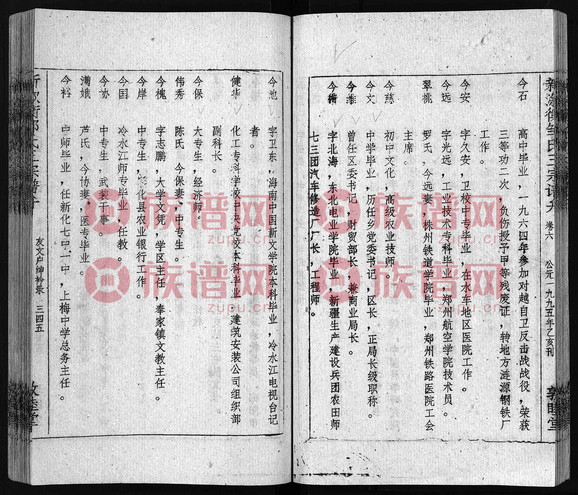 卷六 公元一九九五年乙亥刊
敦睦堂
今石 高中毕业，一九六四年参加对越自卫反击战战役，荣获
三等功二次，负伤授予甲等残废证，转地方涟源钢铁厂
工作。
今安 字久安，卫校中专毕业，在水车地区医院工作。
今远 字光远，工业技术专科毕业，郑州航空学院技术员。
翠桃 罗氏，今远妻，株州铁道学院毕业，郑州铁路医院工会
主席。
今慈 初中文化，高级农业技师。
今文 中学毕业，历任乡党委书记，区长，正局长级职称。
今淮 曾任区委书记，财贸部长，兼商业局长。
字北海，东北电业学院毕业，新疆生产建设兵团农田师
七三团汽车修造厂厂长，工程师。
今池 字卫东，海南中国新文学院本科毕业，冷水江电视台记
者。
健华 化工专科学校毕业，本科毕业，建筑安装公司组织部
副科长。
今保 大专生，经济师。
伟秀 陈氏，今保妻，中专生。
今槐 字志鹏，大学文凭，学区主任，奉家镇文教主任。
今岸 中专生，新化县农业银行工作。
今国 冷水江师专毕业，任教。
今协 中专生，武装干事。
满娥 卢氏，今协妻，医专毕业。
今裕 中师毕业，任新化七中一中，上梅中学总务主任。
友文户绅衿录 三四五
族谱网